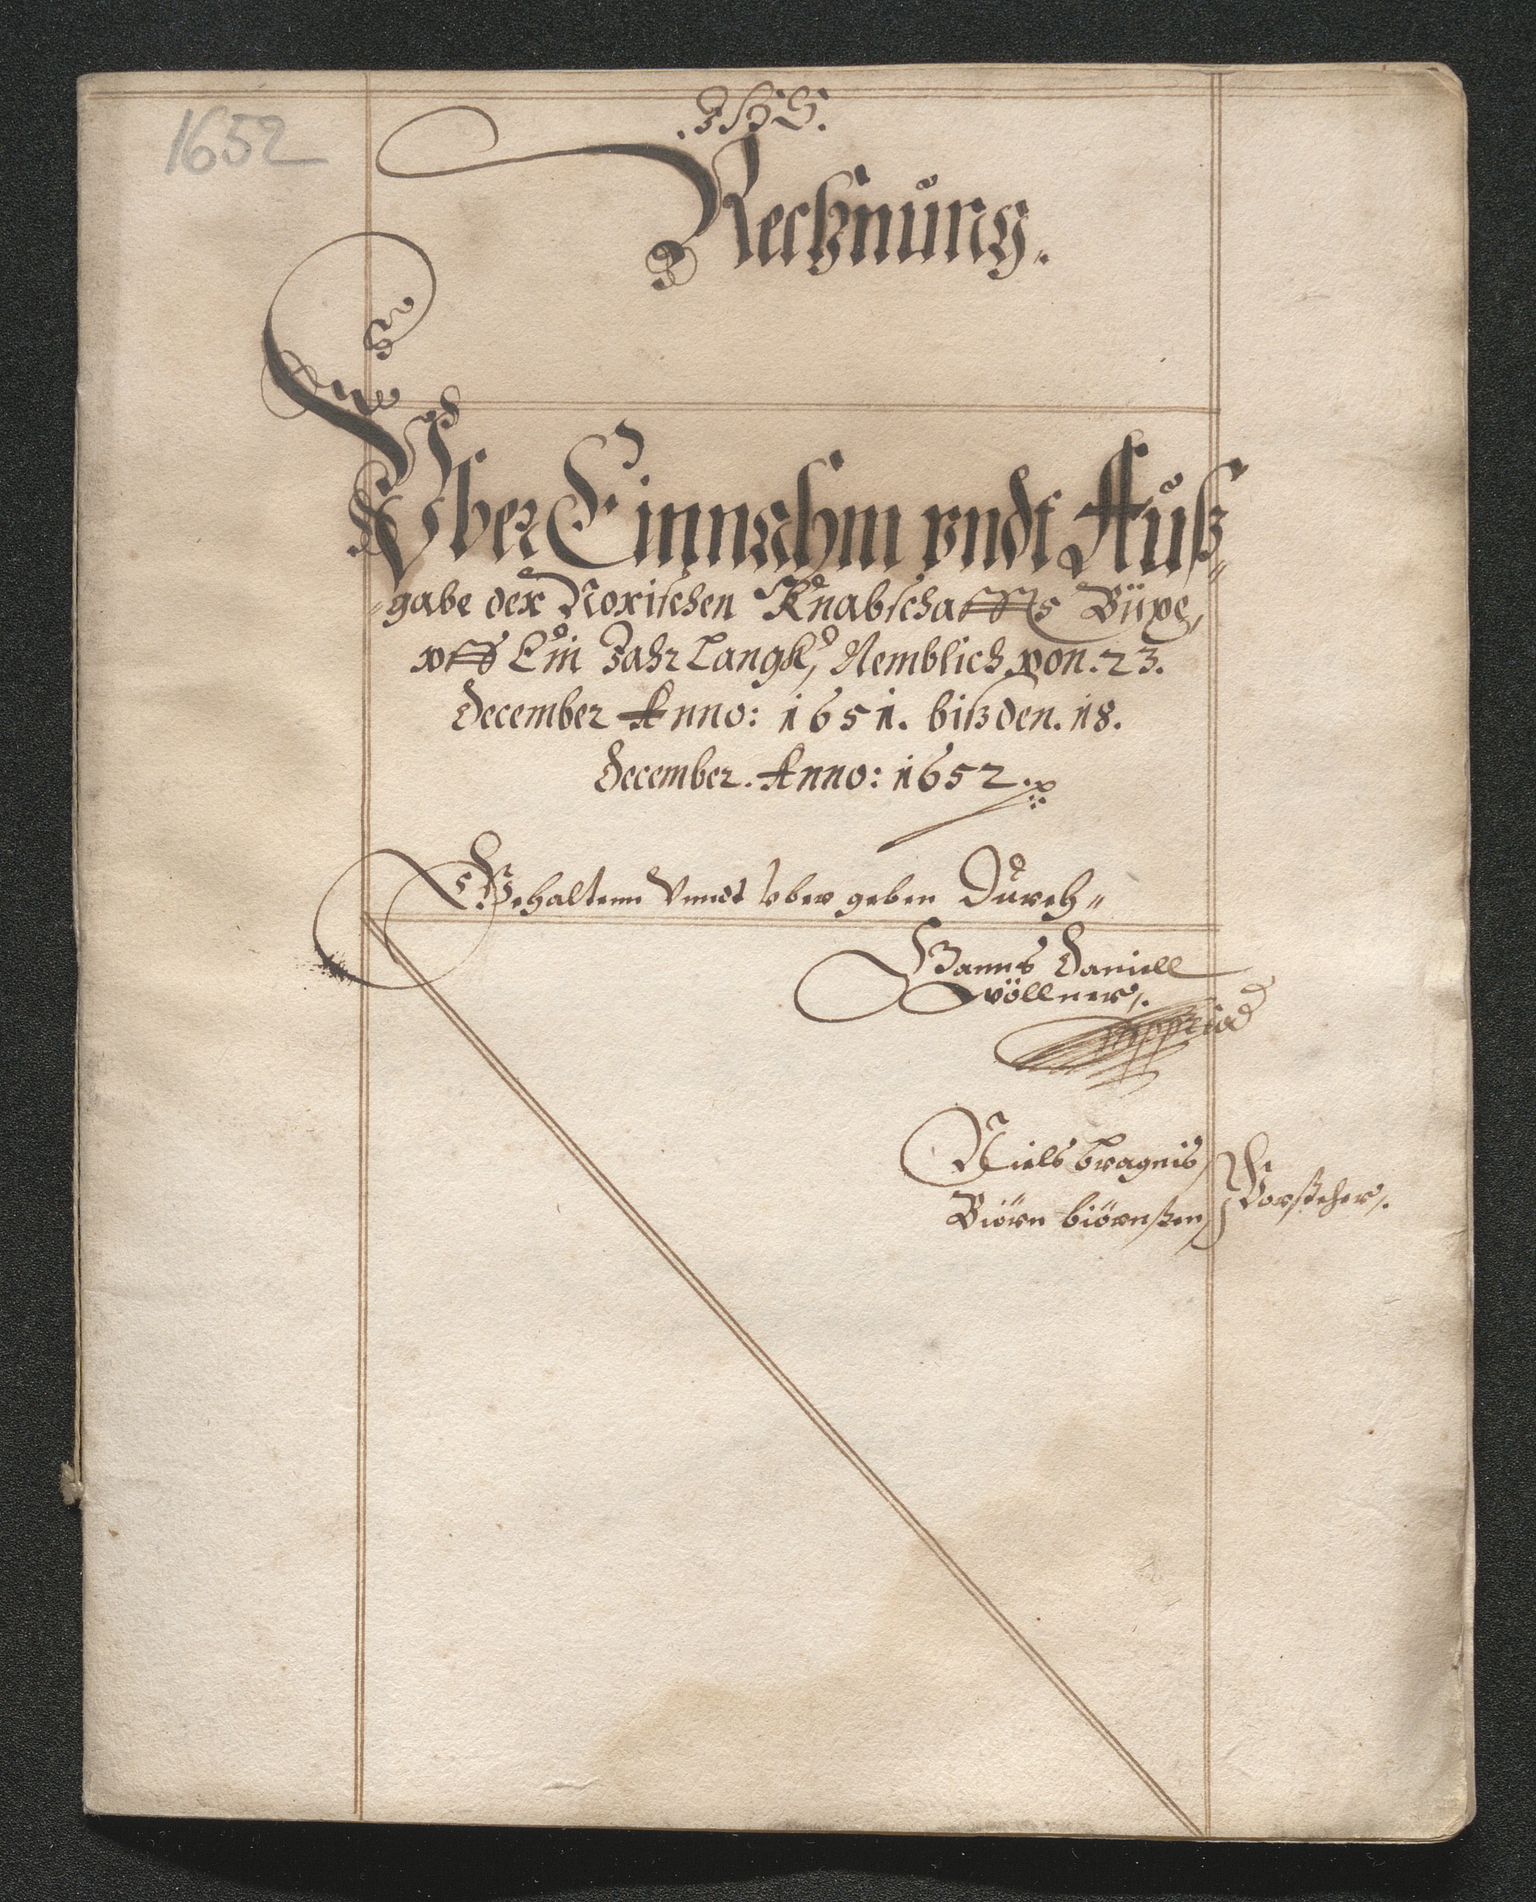 1652
.JHS.
Rechnung.
Vber Einnahm vndt Auß=
=gabe der Norischen Knabschaffts Büxe,
vff Ein Jahr Langk, Nemblich von .23.
December Anno: 1651. biß den. 18.
December. Anno: 1652.
Gehaltenn Vnndt vber geben Durch=
Hanns Daniell
Völlner.
mppria
Niels bragnis
Biörn biörnßen
Vorsteher.